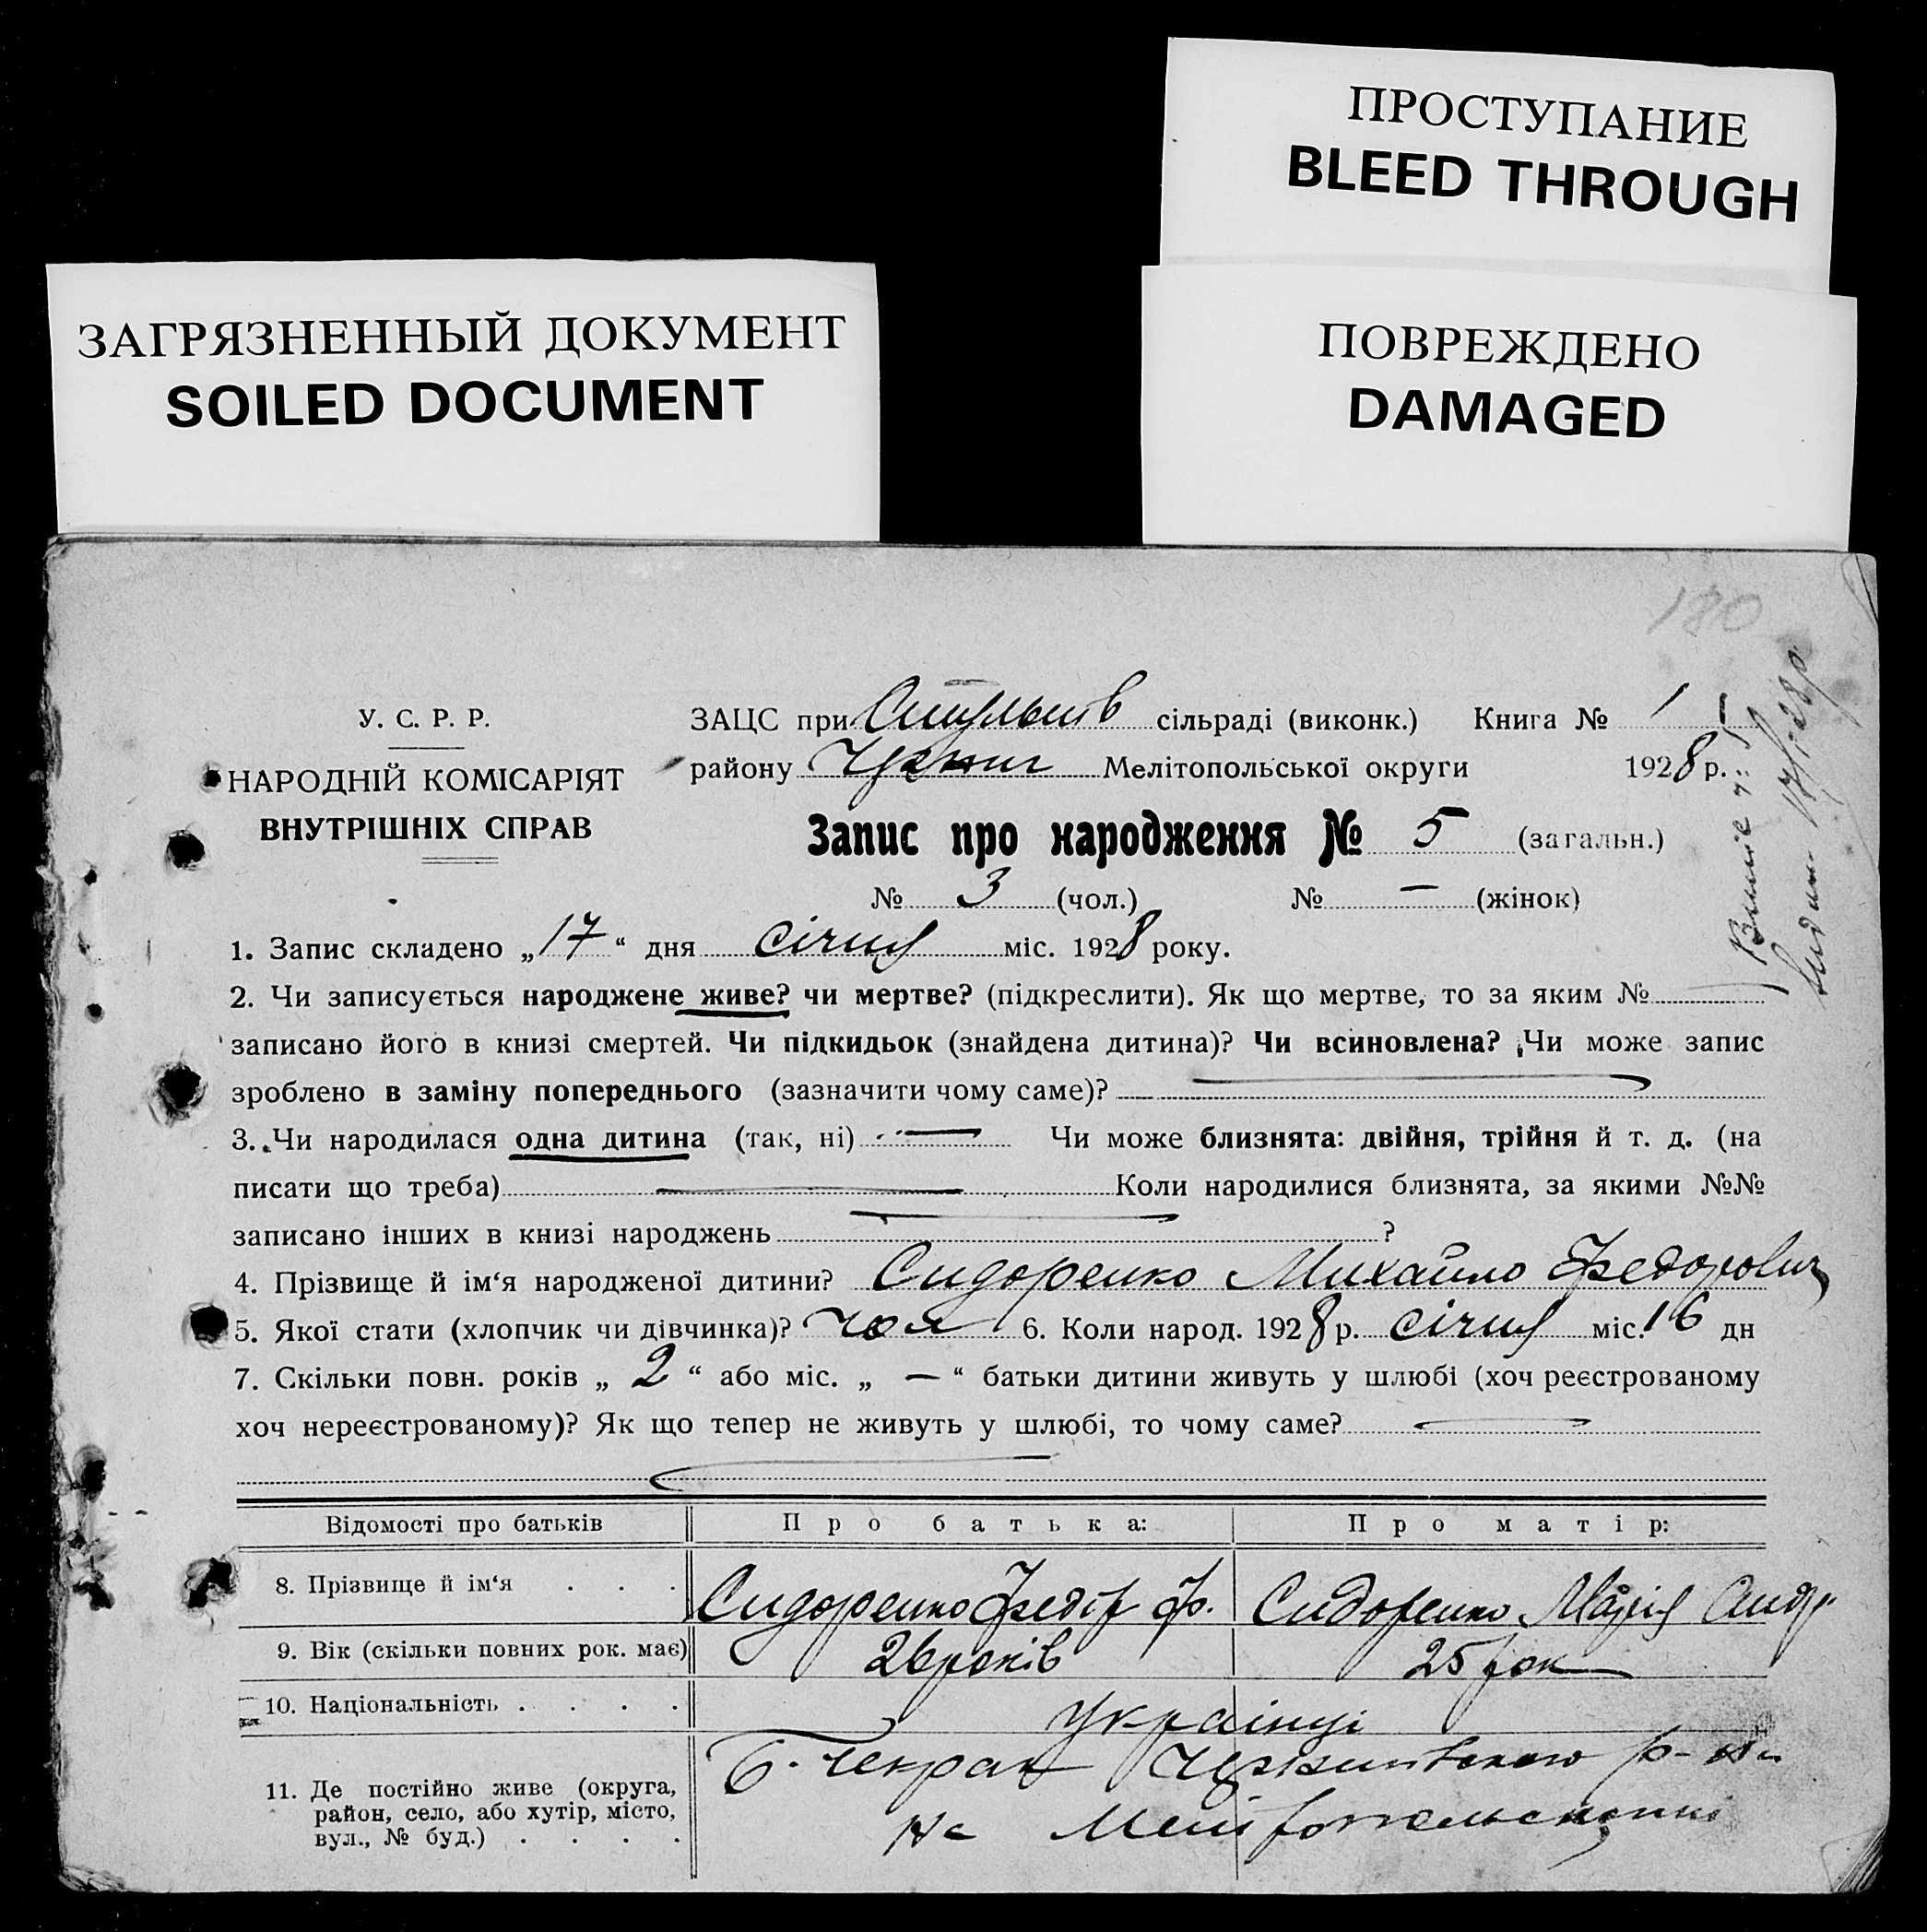 ПРОСТУПАНИЕ
BLEED THROUGH
ЗАГРЯЗНЕННЫЙ ДОКУМЕНТ
SOILED DOCUMENT
ПОВРЕЖДЕНО
DAMAGED
180
У. С. Р. Р.
НАРОДНІЙ КОМІСАРІЯТ
ВНУТРІШНІХ СПРАВ
ЗАЦС при сільраді (виконк.) Книга № 1
району Мелітопольської округи 1928 р.
Запис про народження № 5 (загальн.)
№ 3 (чол.) № — (жінок)
1. Запис складено „17“ дня січня міс. 1928 року.
2. Чи записується народжене живе? чи мертве? (підкреслити). Як що мертве, то за яким №
записано його в книзі смертей. Чи підкидьок (знайдена дитина)? Чи всиновлена? Чи може запис
зроблено в заміну попереднього (зазначити чому саме)?
3. Чи народилася одна дитина (так, ні) — Чи може близнята: двійня, трійня й т. д. (на
писати що треба) — Коли народилися близнята, за якими №№
записано інших в книзі народжень ?
4. Прізвище й ім‘я народженої дитини? Сидоренко Михайло Федорович
5. Якої стати (хлопчик чи дівчинка)? чол 6. Коли народ. 1928 р. січня міс. 16 дн
7. Скільки повн. років „ 2 “ або міс. „ — “ батьки дитини живуть у шлюбі (хоч реєстрованому
хоч нереєстрованому)? Як що тепер не живуть у шлюбі, то чому саме? —
Відомості про батьків Про батька: Про матір:
8. Прізвище й ім‘я . . . Сидоренко Федір Ф. Сидоренко Марія Андр
9. Вік (скільки повних рок. має) 26 років 25 рок
10. Національність . . . . Українці
11. Де постійно живе (округа,
район, село, або хутір, місто,
вул., № буд.) . . . .
Б. Текрак р-на
на